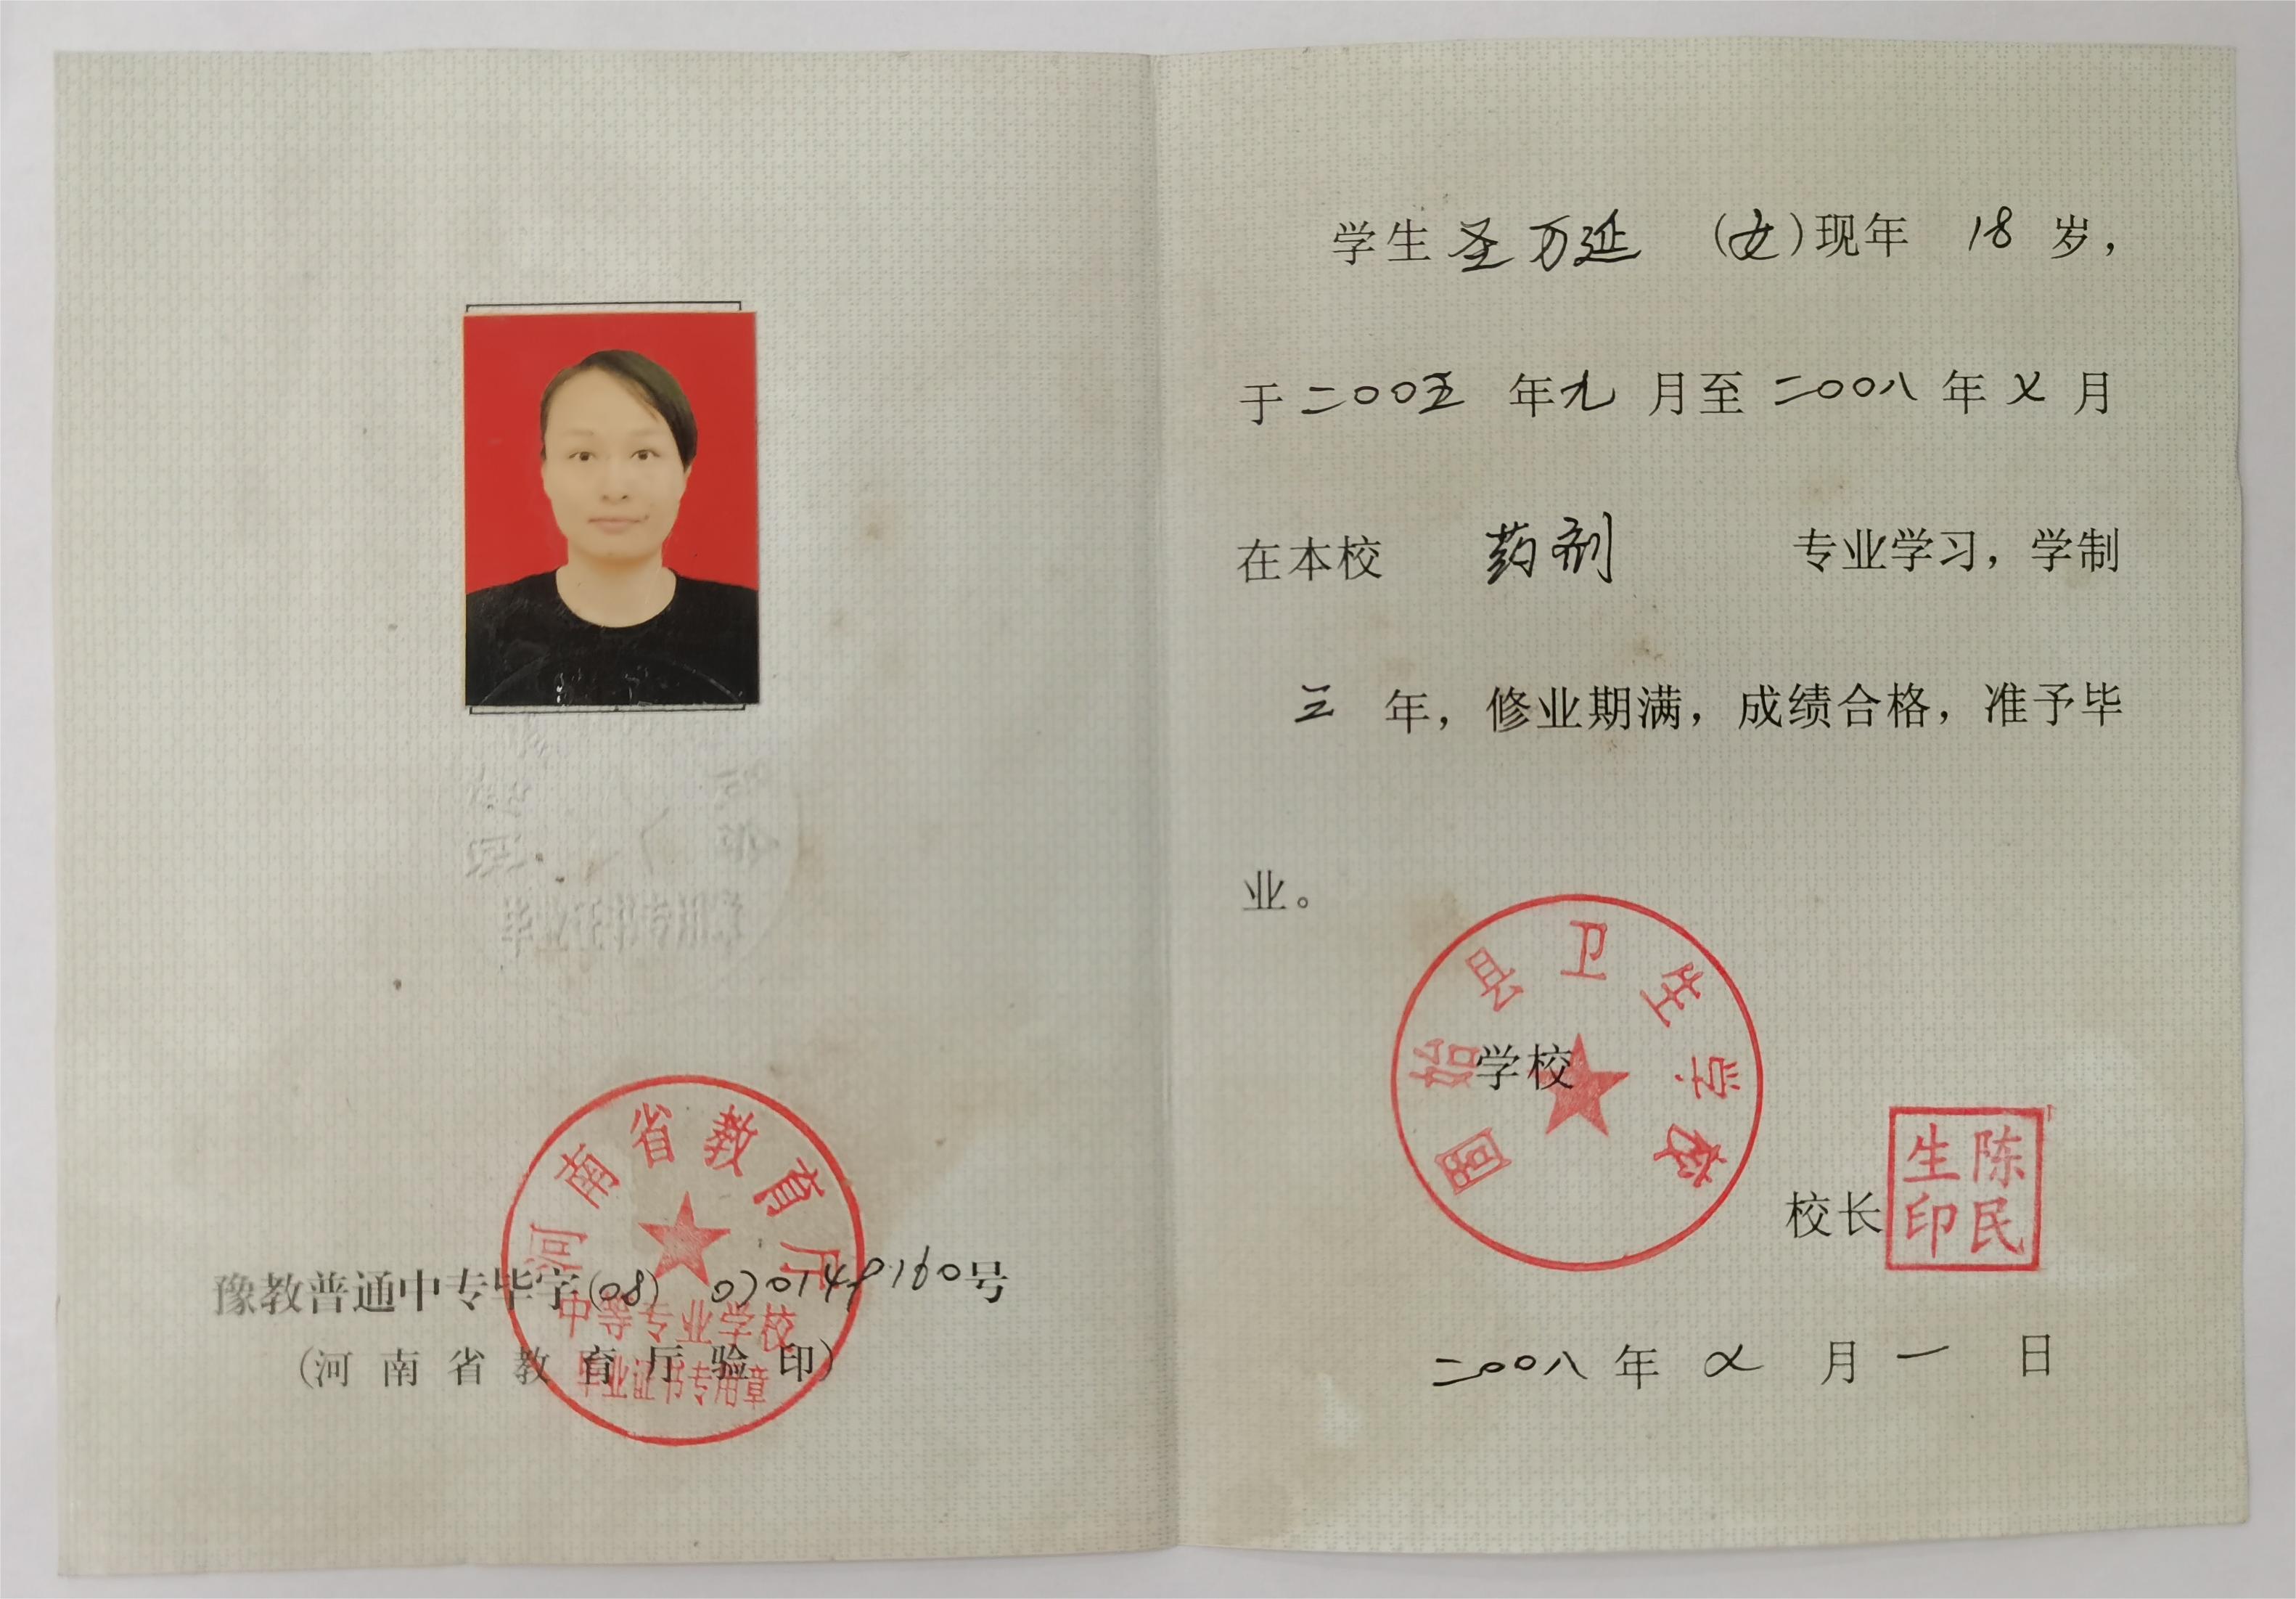 豫教普通中专毕字(08) 070149160号
(河南省教育厅验印)
河南省教育厅
中等专业学校
毕业证书专用章
学生圣万延 (女)现年 18 岁，
于二〇〇五 年九 月至二〇〇八 年七月
在本校 药剂 专业学习，学制
三 年，修业期满，成绩合格，准予毕
业。
固始县卫生学校
学校
校长
陈民生印
二〇〇八年 七 月 一 日